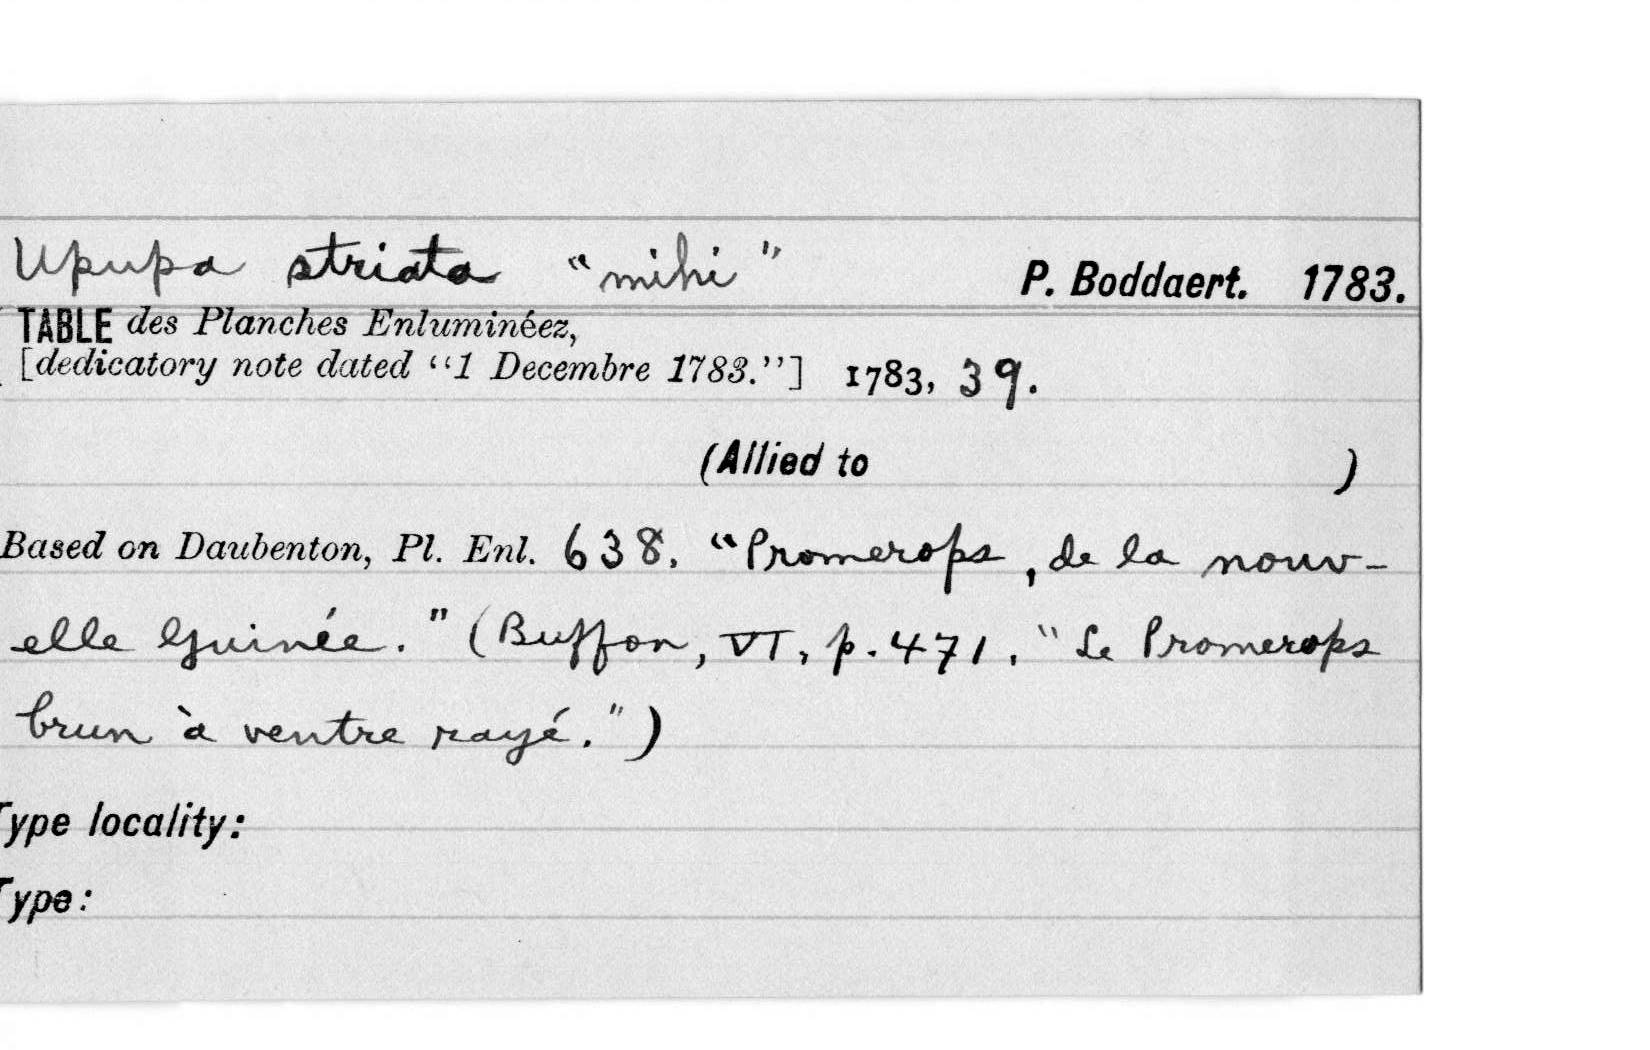 Upupa striata "mihi" P. Boddaert. 1783.
TABLE des Planches Enluminéez,
[dedicatory note dated "1 Decembre 1783."] 1783, 39.
(Allied to )
Based on Daubenton, Pl. Enl. 638. "Promerops, de la nouv-
elle Guinée." (Buffon, VI, p. 471. "Le Promerops
brun à ventre rayé.")
Type locality:
Type: